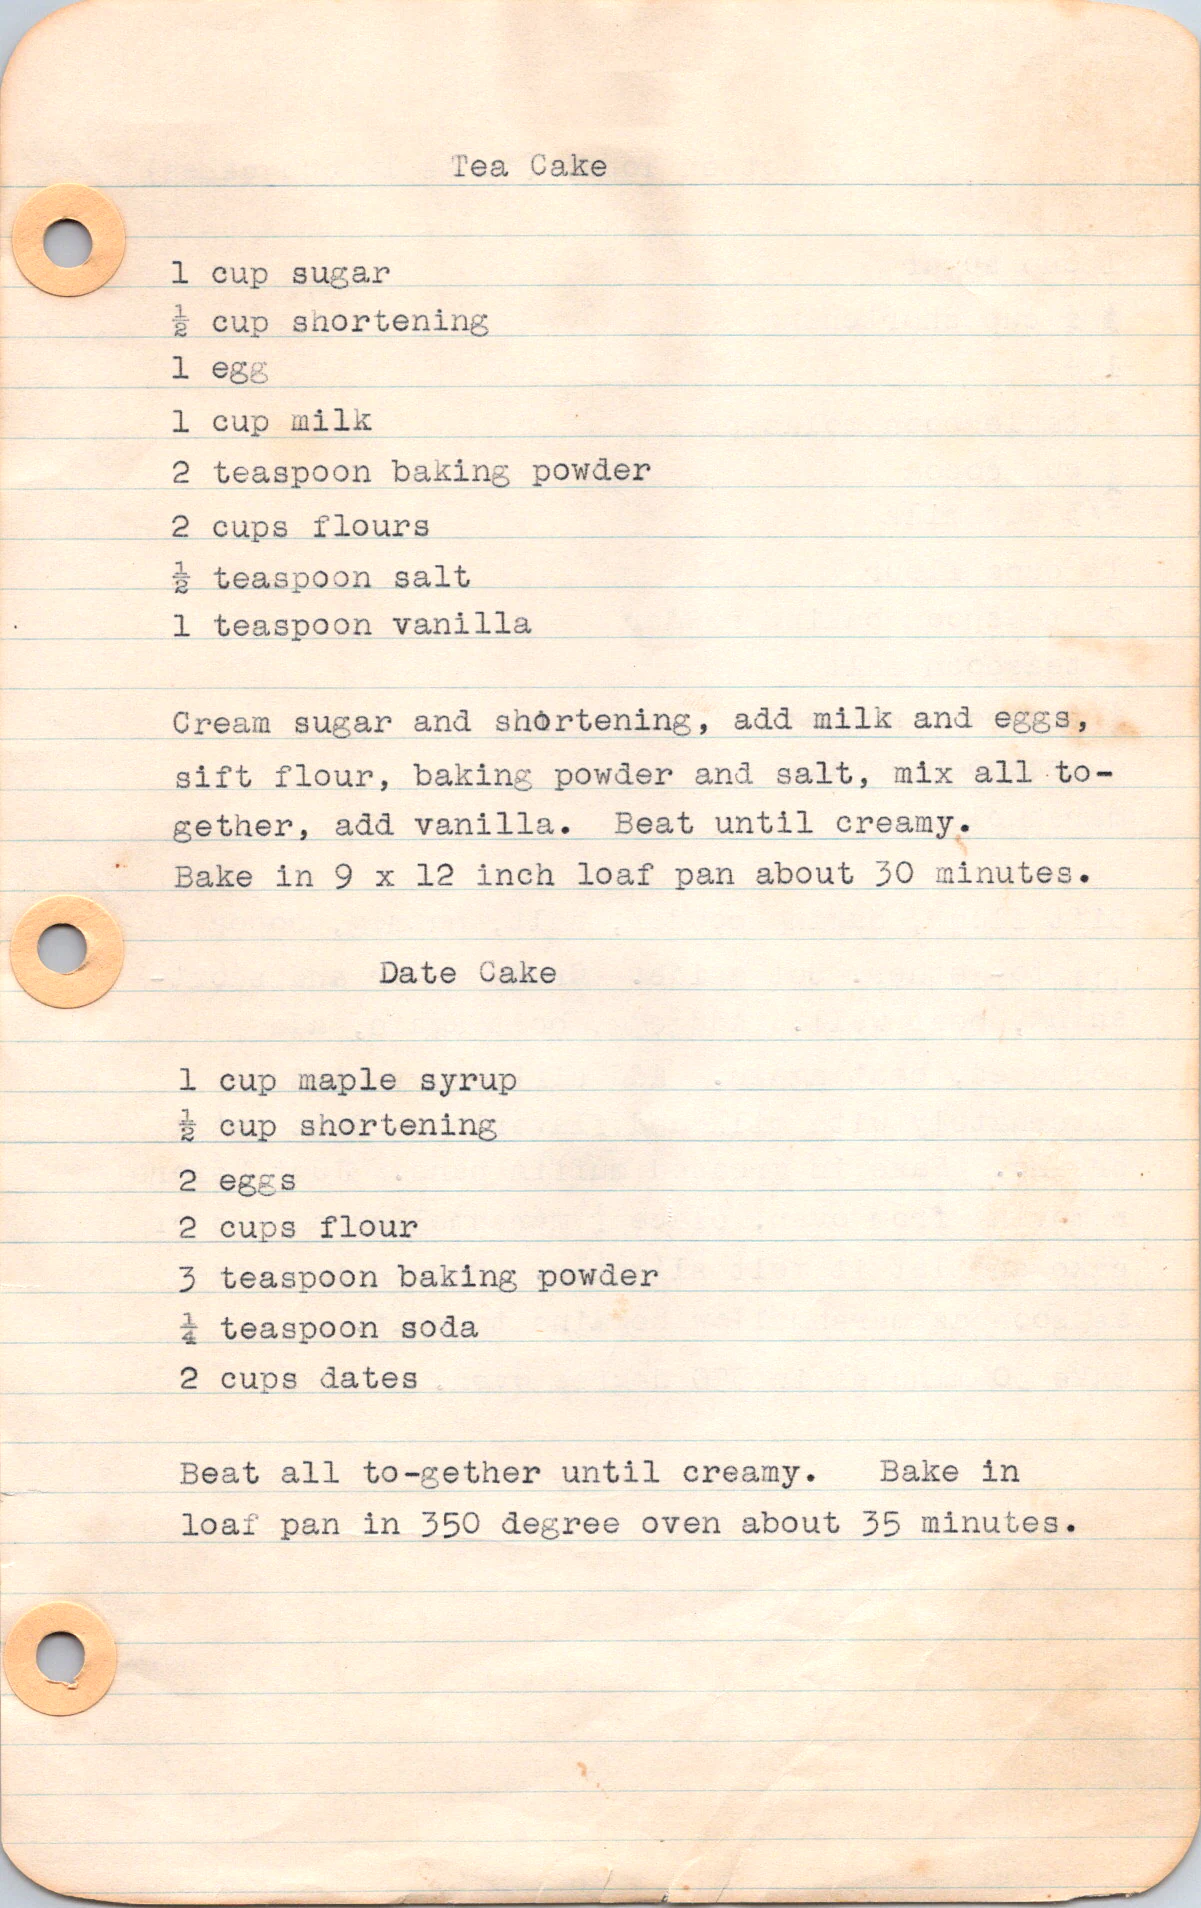 Tea Cake
1 cup sugar
½ cup shortening
1 egg
1 cup milk
2 teaspoon baking powder
2 cups flours
½ teaspoon salt
1 teaspoon vanilla
Cream sugar and shortening, add milk and eggs,
sift flour, baking powder and salt, mix all to-
gether, add vanilla.  Beat until creamy.
Bake in 9 x 12 inch loaf pan about 30 minutes.
Date Cake
1 cup maple syrup
½ cup shortening
2 eggs
2 cups flour
3 teaspoon baking powder
¼ teaspoon soda
2 cups dates
Beat all to-gether until creamy.   Bake in
loaf pan in 350 degree oven about 35 minutes.